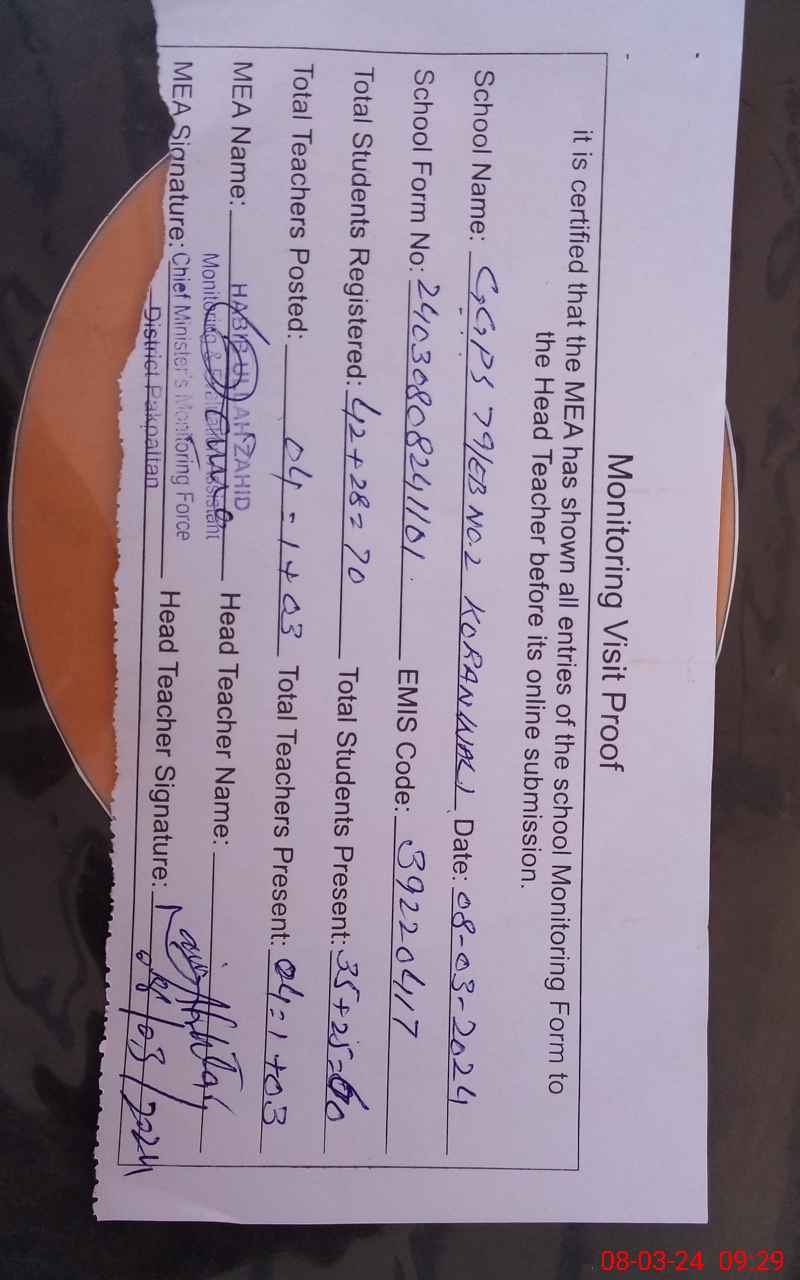 Monitoring Visit Proof
it is certified that the MEA has shown all entries of the school Monitoring Form to
the Head Teacher before its online submission.
School Name: GGPS 79/EB NO.2 KORANWALI Date: 08-03-2024
School Form No: 24030808241101 EMIS Code: 39220417
Total Students Registered: 42+28=70 Total Students Present: 35+25=60
Total Teachers Posted: 04=1+03 Total Teachers Present: 04=1+03
MEA Name: HABIB ULLAH ZAHID Head Teacher Name:
Monitoring & Evaluation Assistant
MEA Signature: Chief Minister's Monitoring Force Head Teacher Signature:
District Pakpattan
08/03/2024
08-03-24 09:29